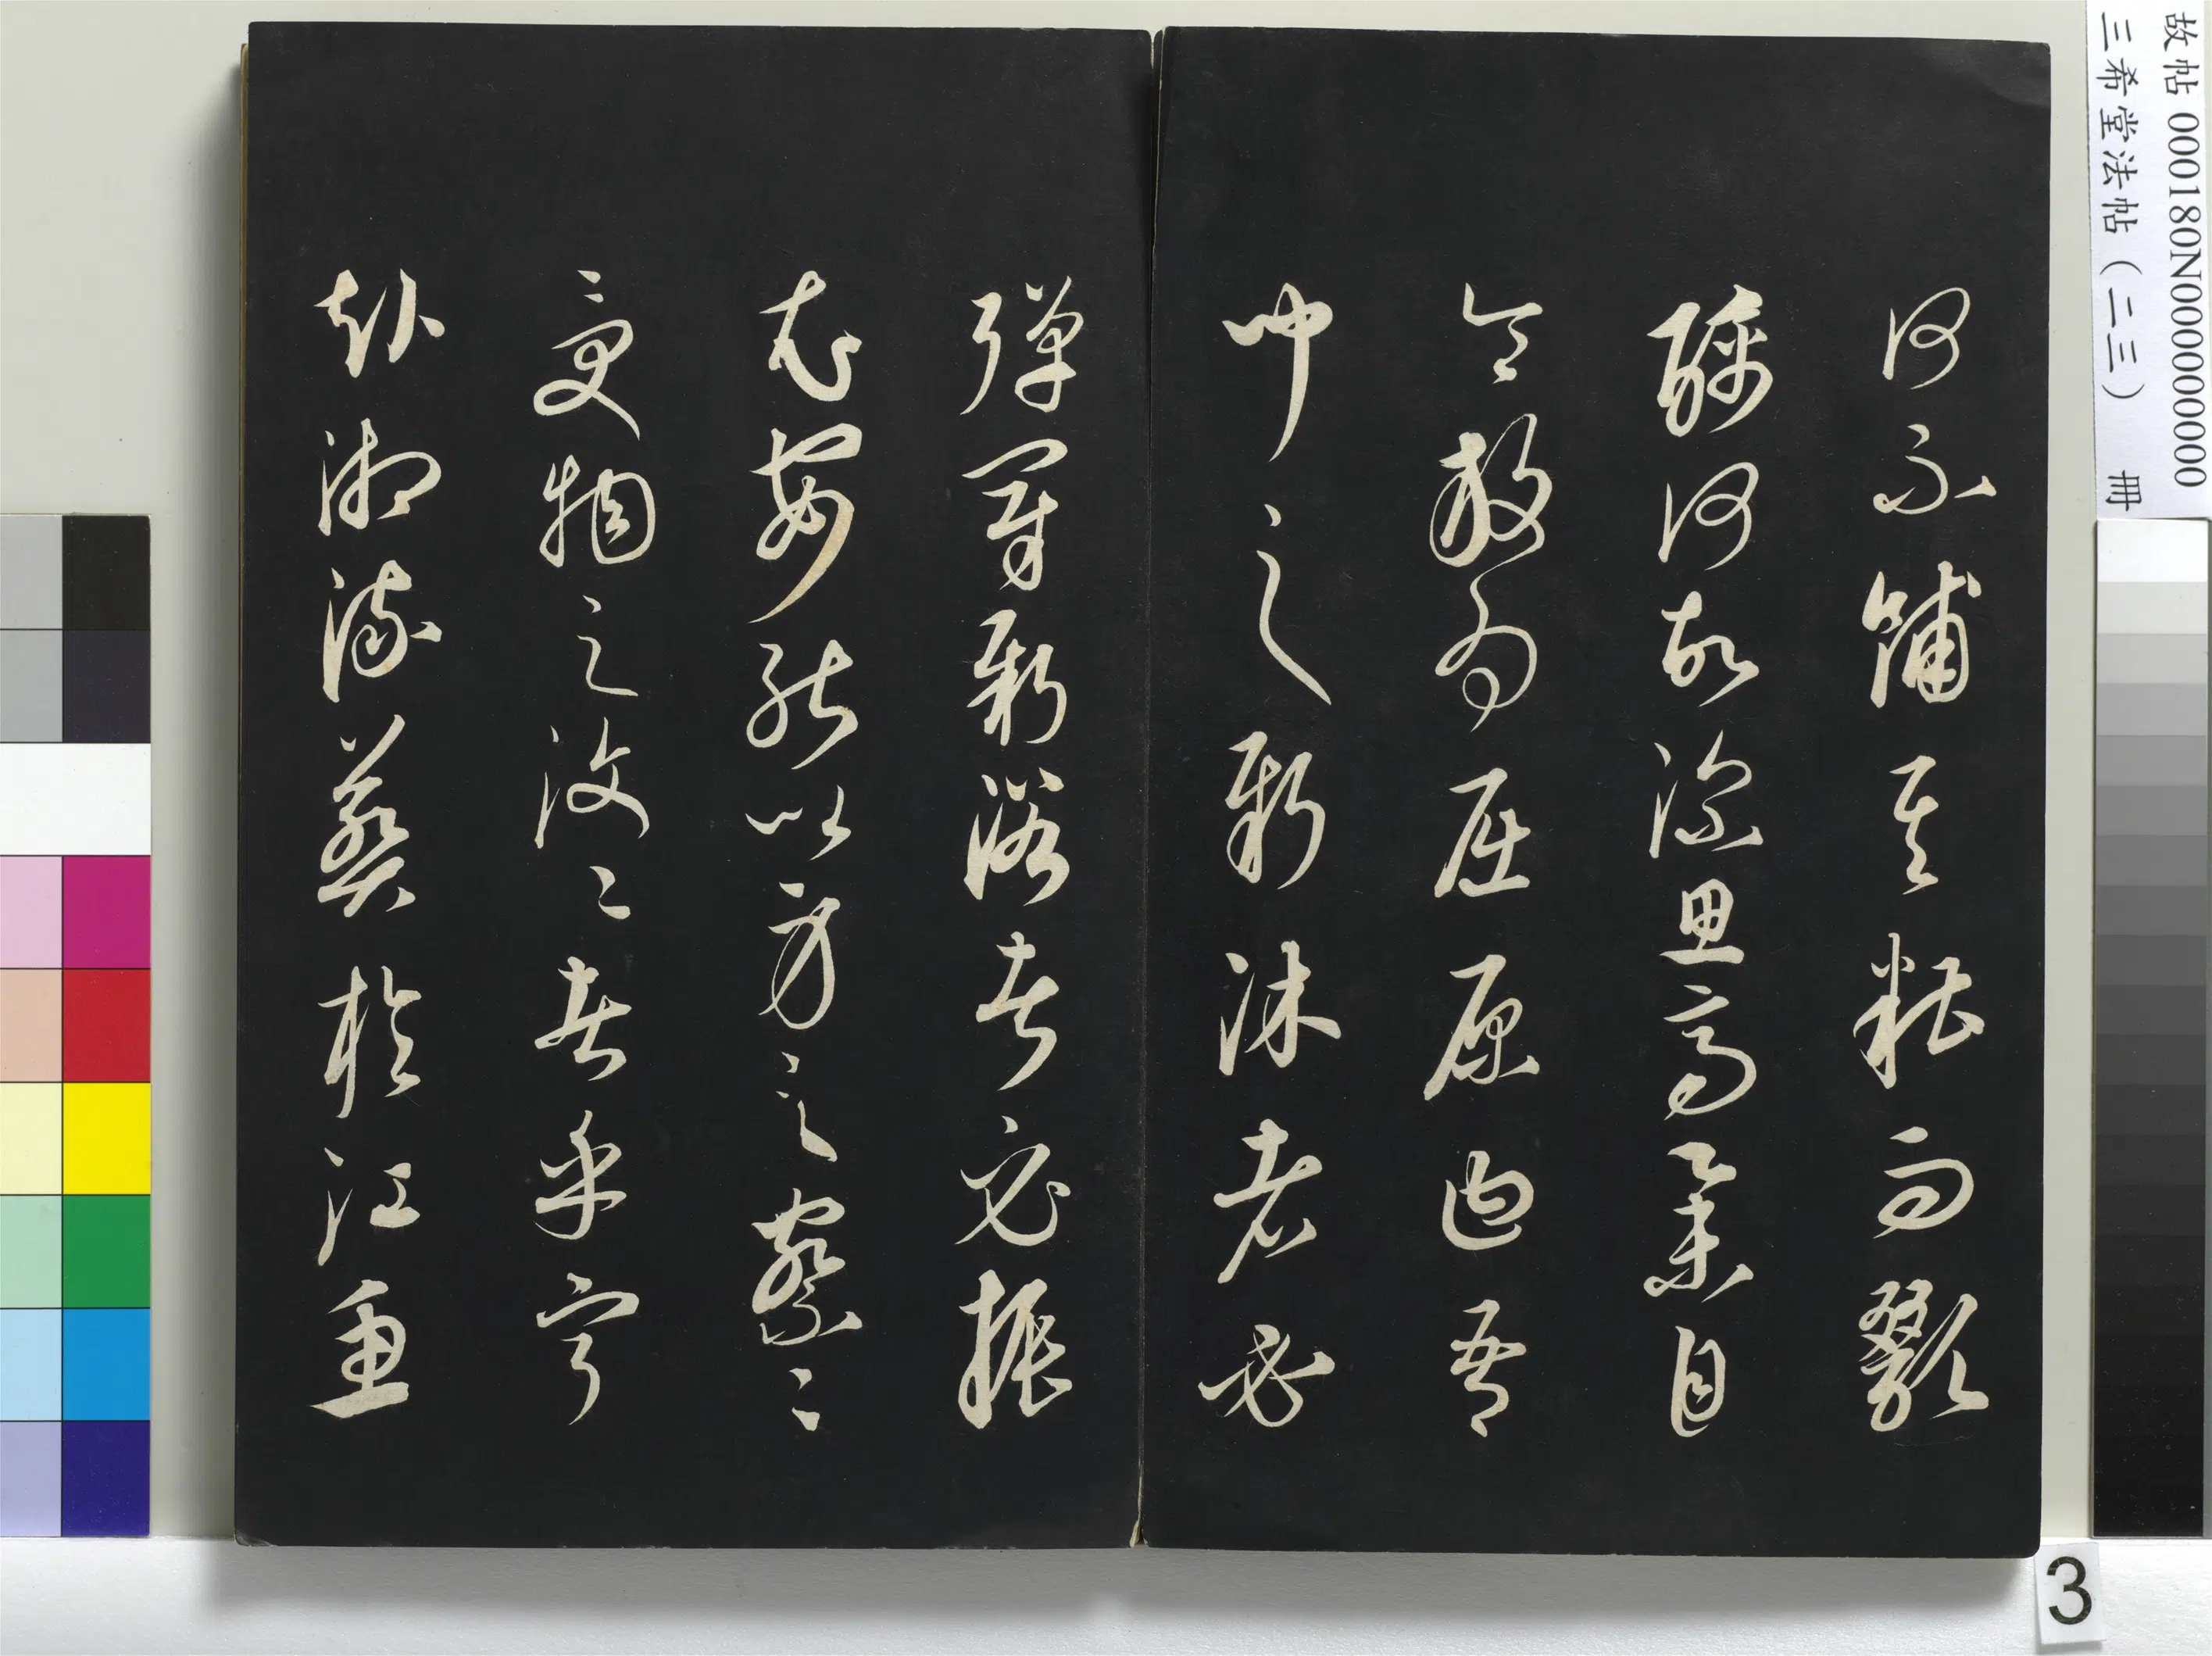 故帖 000180N000000000
三希堂法帖（二三） 冊
何不餔其糟而歠
醨何故深思高舉自
令放為屈原曰吾
聞之新沐者必
彈冠新浴者必振
衣安能以身之察〻
受物之汶〻者乎寧
赴湘流葬於江魚
3